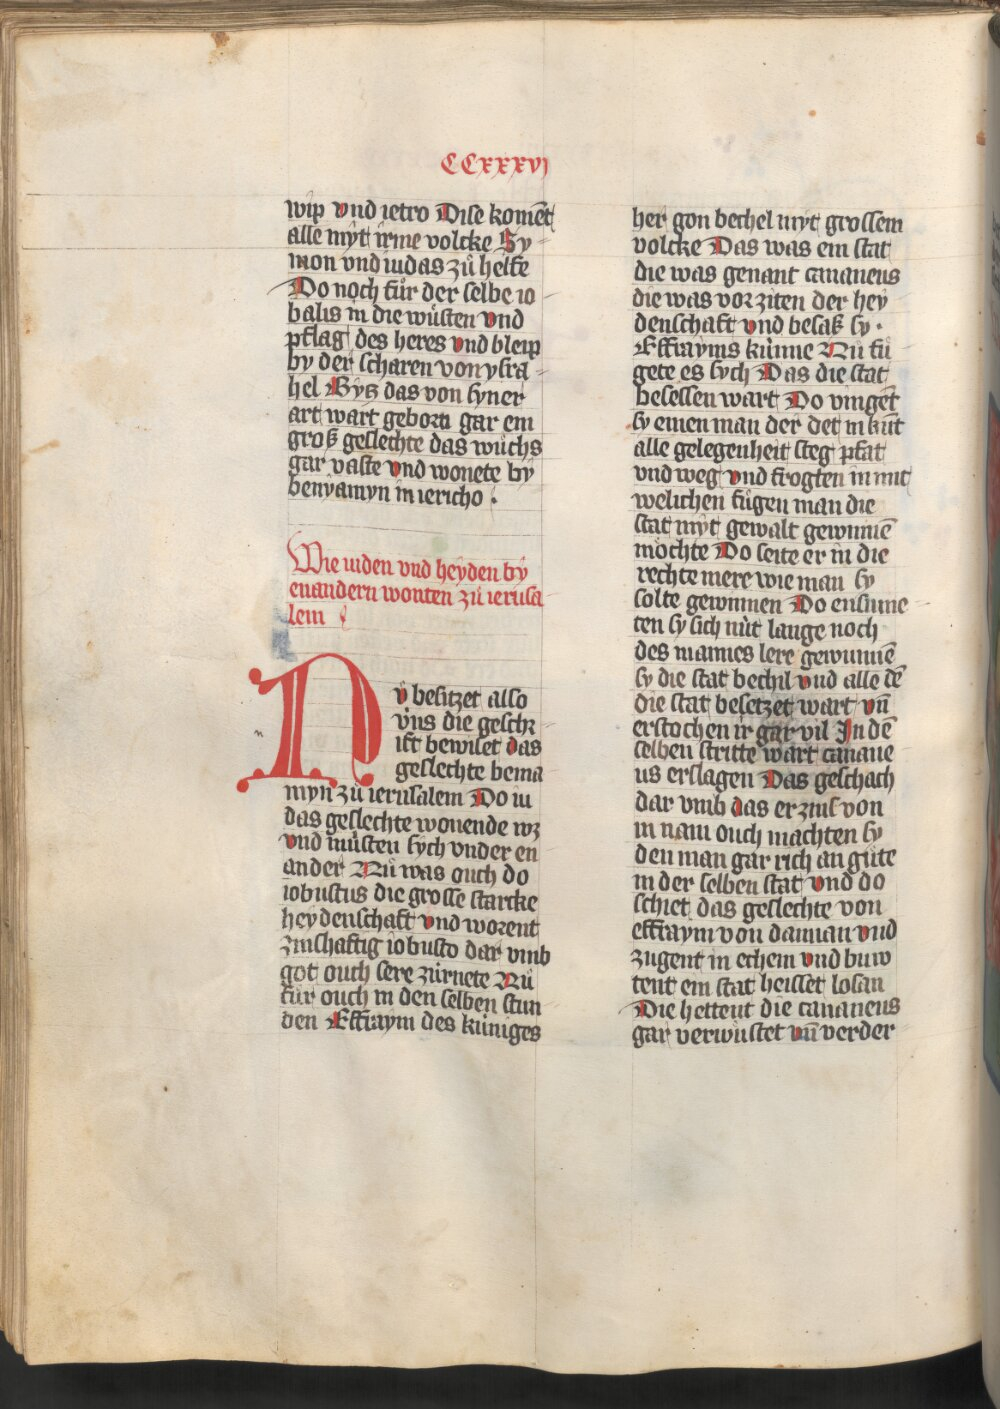 CCxxxvj
wip vnd ietro Dise komēt
alle myt irme volcke Sy-
mon vnd iudas zů helfe
Do noch fůr der selbe io-
balis in die wůsten vnd
pflag des heres vnd bleip
by der scharen von ysra-
hel Bys das von syner
art wart geborn gar ein
groß geslechte das wůchs
gar vaste vnd wonete by
benyamyn in iericho .
Wie iuden vnd heyden by
enandern wonten zů ierusa
lem
Nv̊ besitzet also
vns die geschr
ift bewiset das
geslechte benia
myn zů ierusalem Do in
das geslechte wonende wz
vnd můsten sych vnder en
ander Nů was ouch do
iobustus die grosse starcke
heydenschaft vnd worent
zinshaftig iobusto dar vmb
got ouch sere zůrnete Nů
fůr ouch in den selben stun
den Effraym des kůniges
her gon bechel myt grossem
volcke Das was ein stat
die was genant cananeus
die was vor ziten der hey
denschaft vnd besaß sy .
Effrayms kůnne Nů fů
gete es sych Das die stat
besessen wart Do vingēt
sy einen man der det in kūt
alle gelegenheit steg pfat
vnd weg vnd frogten in mit
welichen fůgen man die
stat myt gewalt gewinnē
mochte Do seite er in die
rechte mere wie man sy
solte gewinnen Do ensume-
ten sy sich nůt lange noch
des mannes lere gewunnē
sy die stat bechil vnd alle dē
die stat besetzet wart vn̄
erstochen ir gar vil In dē
selben stritte wart canane
us erslagen Das geschach
dar vmb das er zins von
in nam ouch machten sy
den man gar rich an gůte
in der selben stat vnd do
schiet das geslechte von
effraym von damian vnd
zugent in echem vnd buw
tent ein stat heisset losan
Die hettent die cananeus
gar verwůstet vn̄ verder